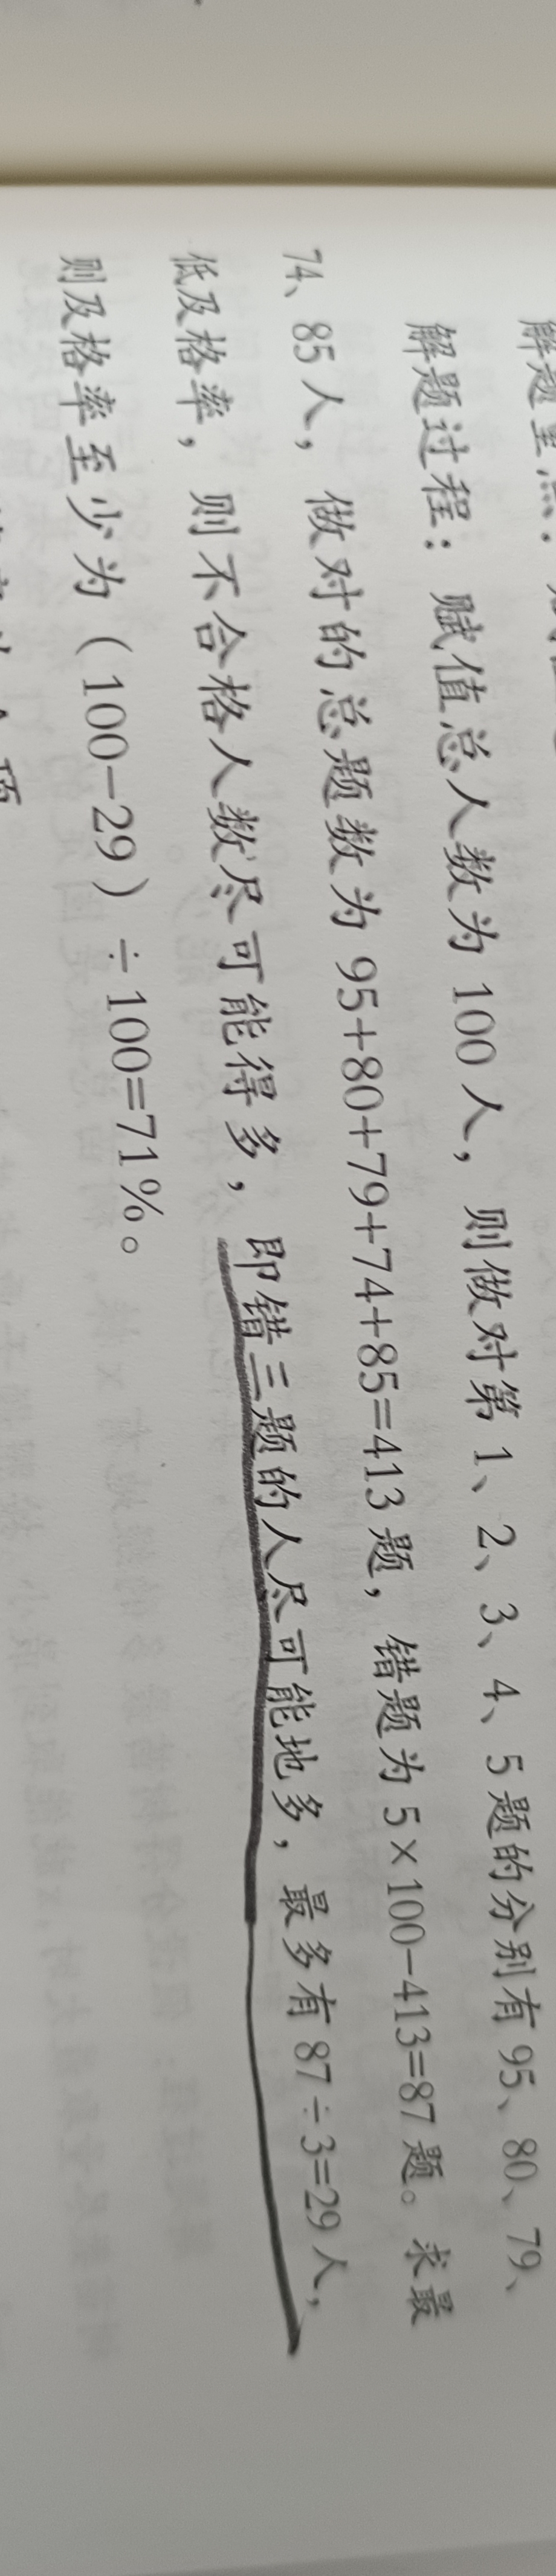 解题过程：赋值总人数为 100 人，则做对第 1、2、3、4、5 题的分别有 95、80、79、
74、85 人，做对的总题数为 95+80+79+74+85=413 题，错题为 5×100-413=87 题。求最
低及格率，则不合格人数尽可能得多，即错三题的人尽可能地多，最多有 87÷3=29 人，
则及格率至少为（100-29）÷100=71%。